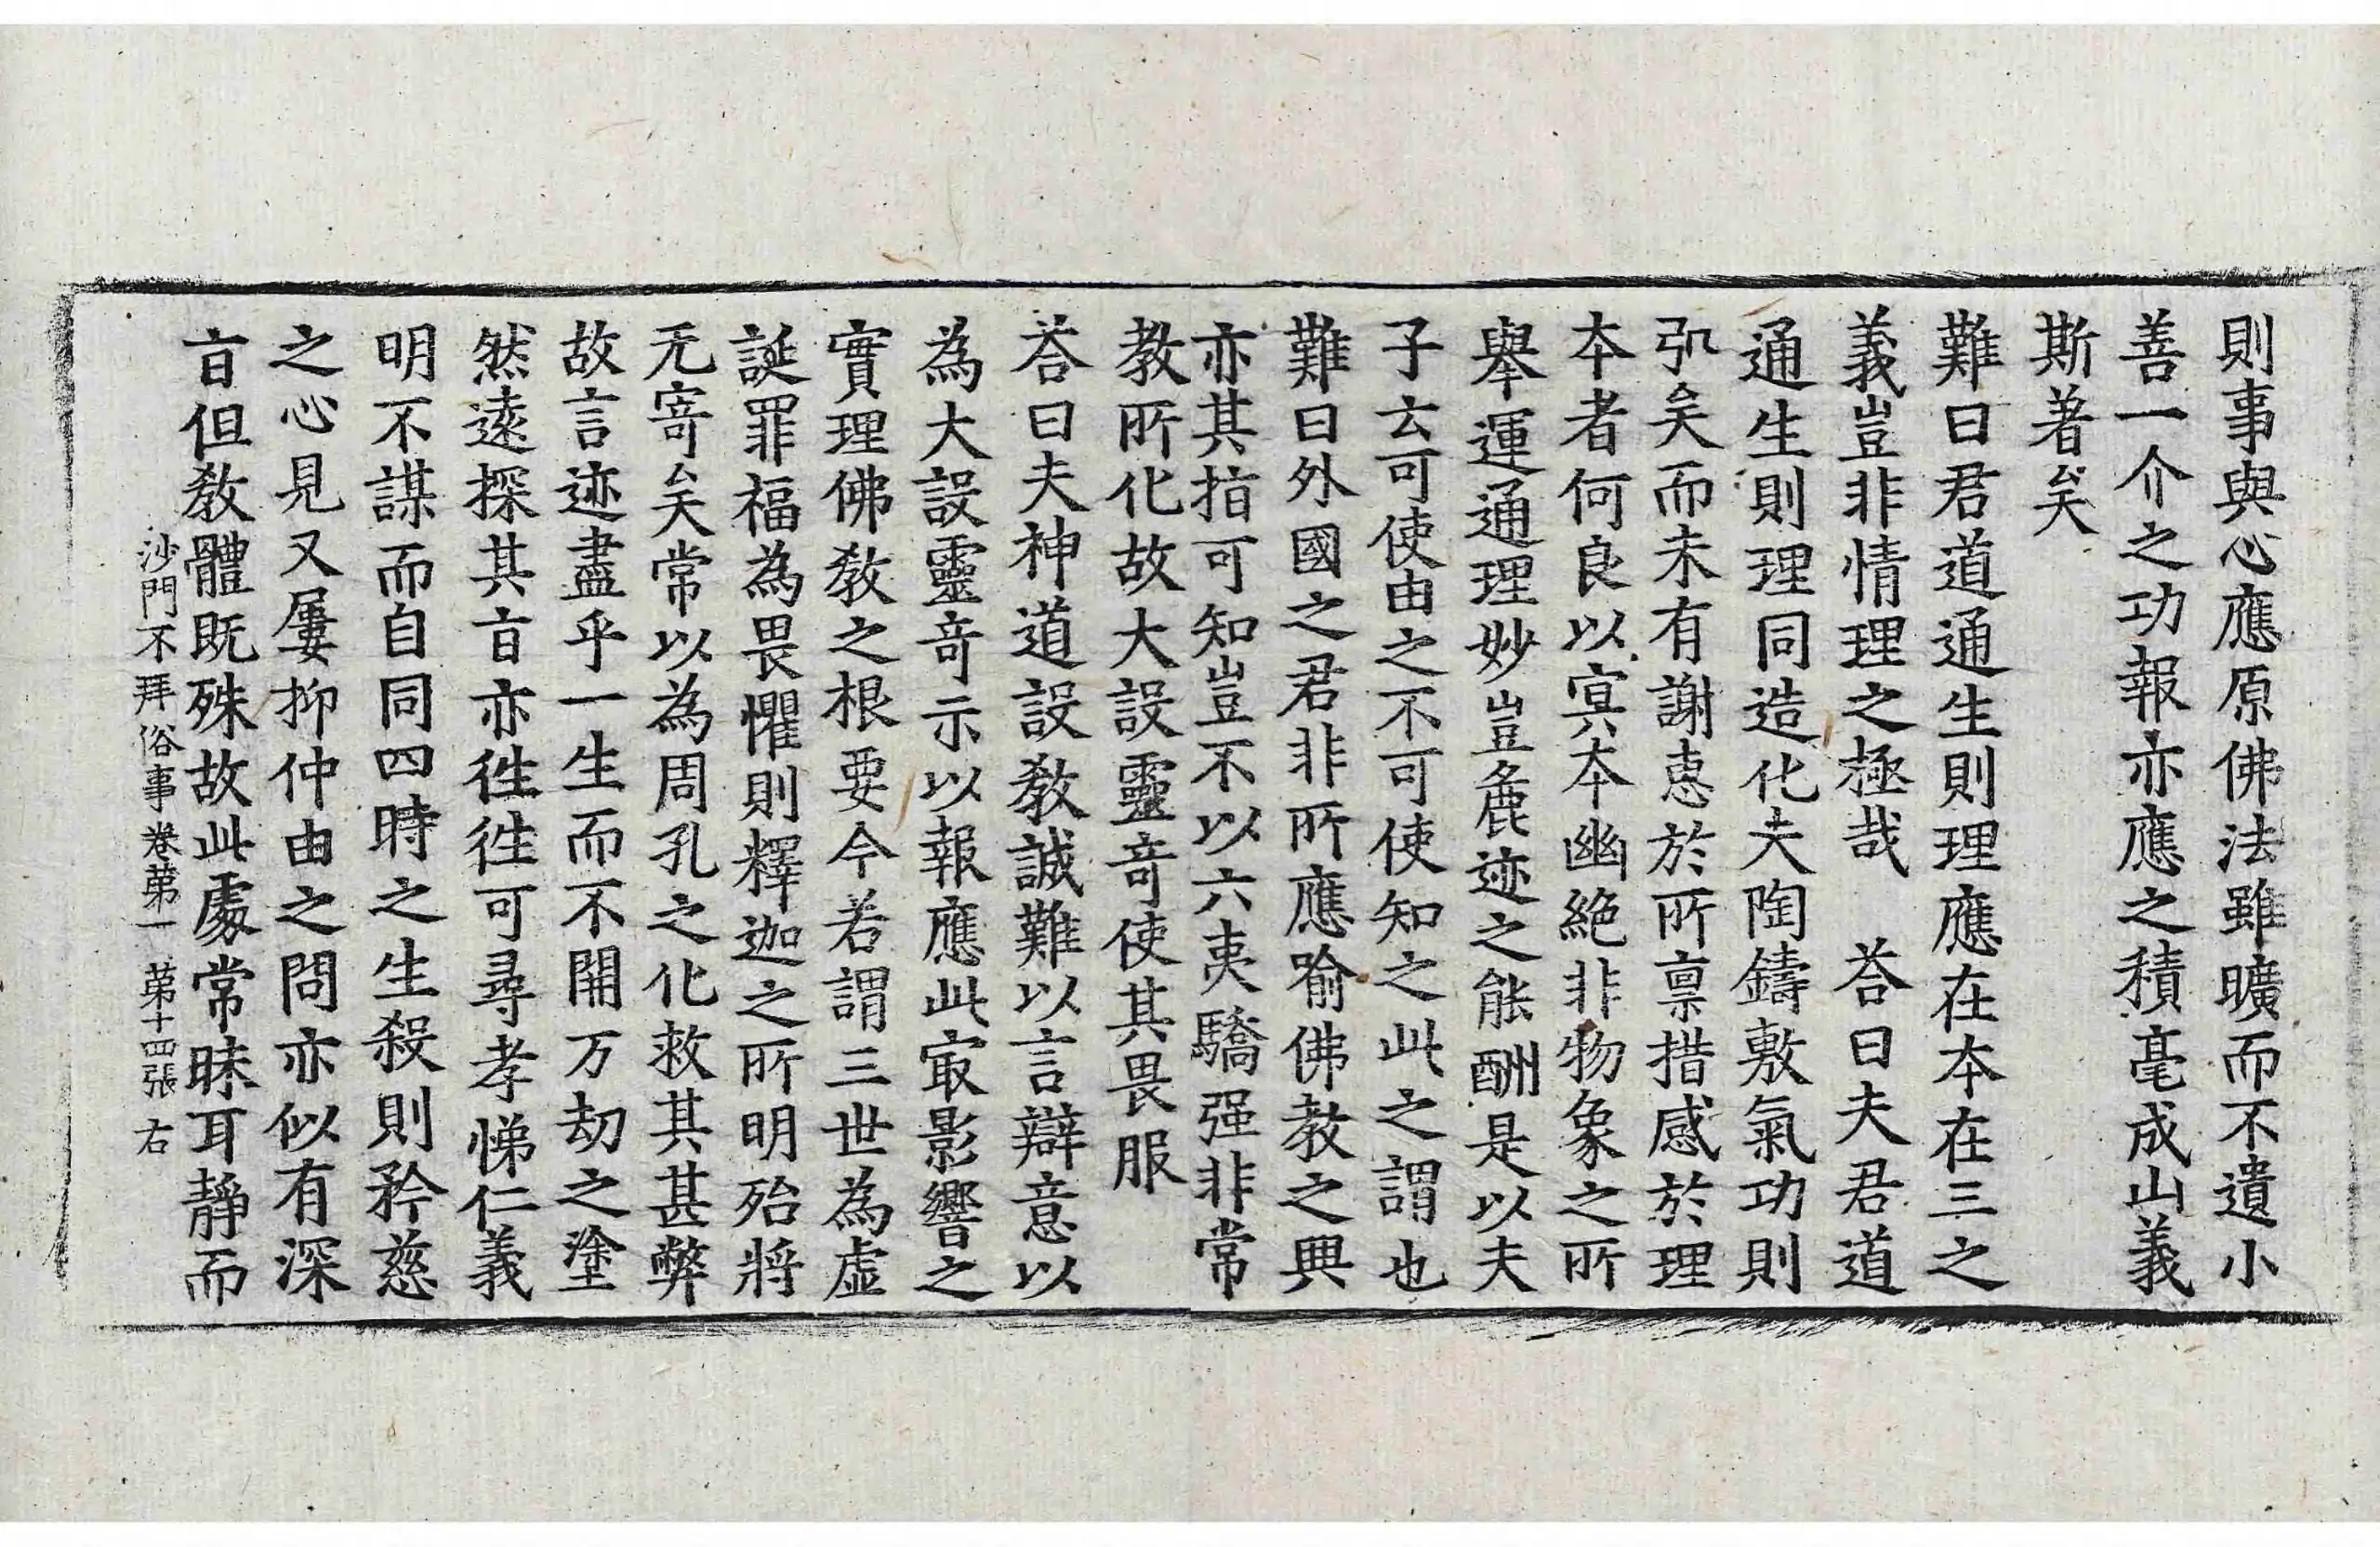 則事與心應原佛法雖曠而不遺小
善一介之功報亦應之積毫成山義
斯著矣
難曰君道通生則理應在本在三之
義豈非情理之極哉　荅曰夫君道
通生則理同造化夫陶鑄敷氣功則
弘矣而未有謝惠於所禀措感於理
本者何良以冥本幽絶非物象之所
舉運通理妙豈麁迹之能酬是以夫
子云可使由之不可使知之此之謂也
難曰外國之君非所應喻佛教之興
亦其指可知豈不以六夷驕强非常
教所化故大設靈竒使其畏服
荅曰夫神道設教誠難以言辯意以
為大設靈竒示以報應此㝡影響之
實理佛教之根要今若謂三世為虛
誕罪福為畏懼則釋迦之所明殆將
无寄矣常以為周孔之化救其甚弊
故言迹盡乎一生而不開万劫之塗
然遠探其㫖亦徃徃可尋孝悌仁義
明不謀而自同四時之生殺則矜慈
之心見又屢抑仲由之問亦似有深
㫖但教體既殊故此處常昧耳靜而
沙門不拜俗事卷苐一　苐十四張　右